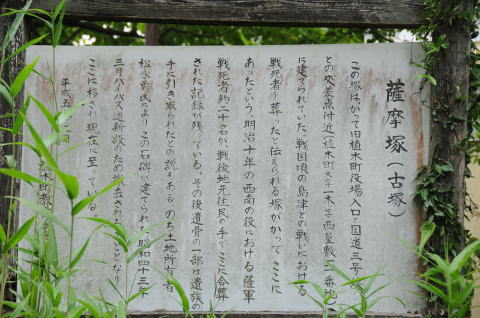 薩摩塚(古塚)
この塚はかつて旧植木町役場入口と国道三号線
との交差点付近(植木町大字一木字西屋敷二番地)
に建てられていた。戦国頃の島津との戦いにおける
戦死者を葬ったと伝えられる塚がかつてここに
あったという。明治十年の西南の役における薩軍
戦死者約二十名が、戦後地元住民の手でここに合葬
された記録が残っている。その後遺骨の一部は遺族の
手に引き取られたとの説もある。のち土地所有者
松永 氏によりこの石碑が建てられ、昭和四十三年
三月バイパス道新設のため撤去されることとなり
ここに移され現在に至っている。
平成五年 月
植木町教